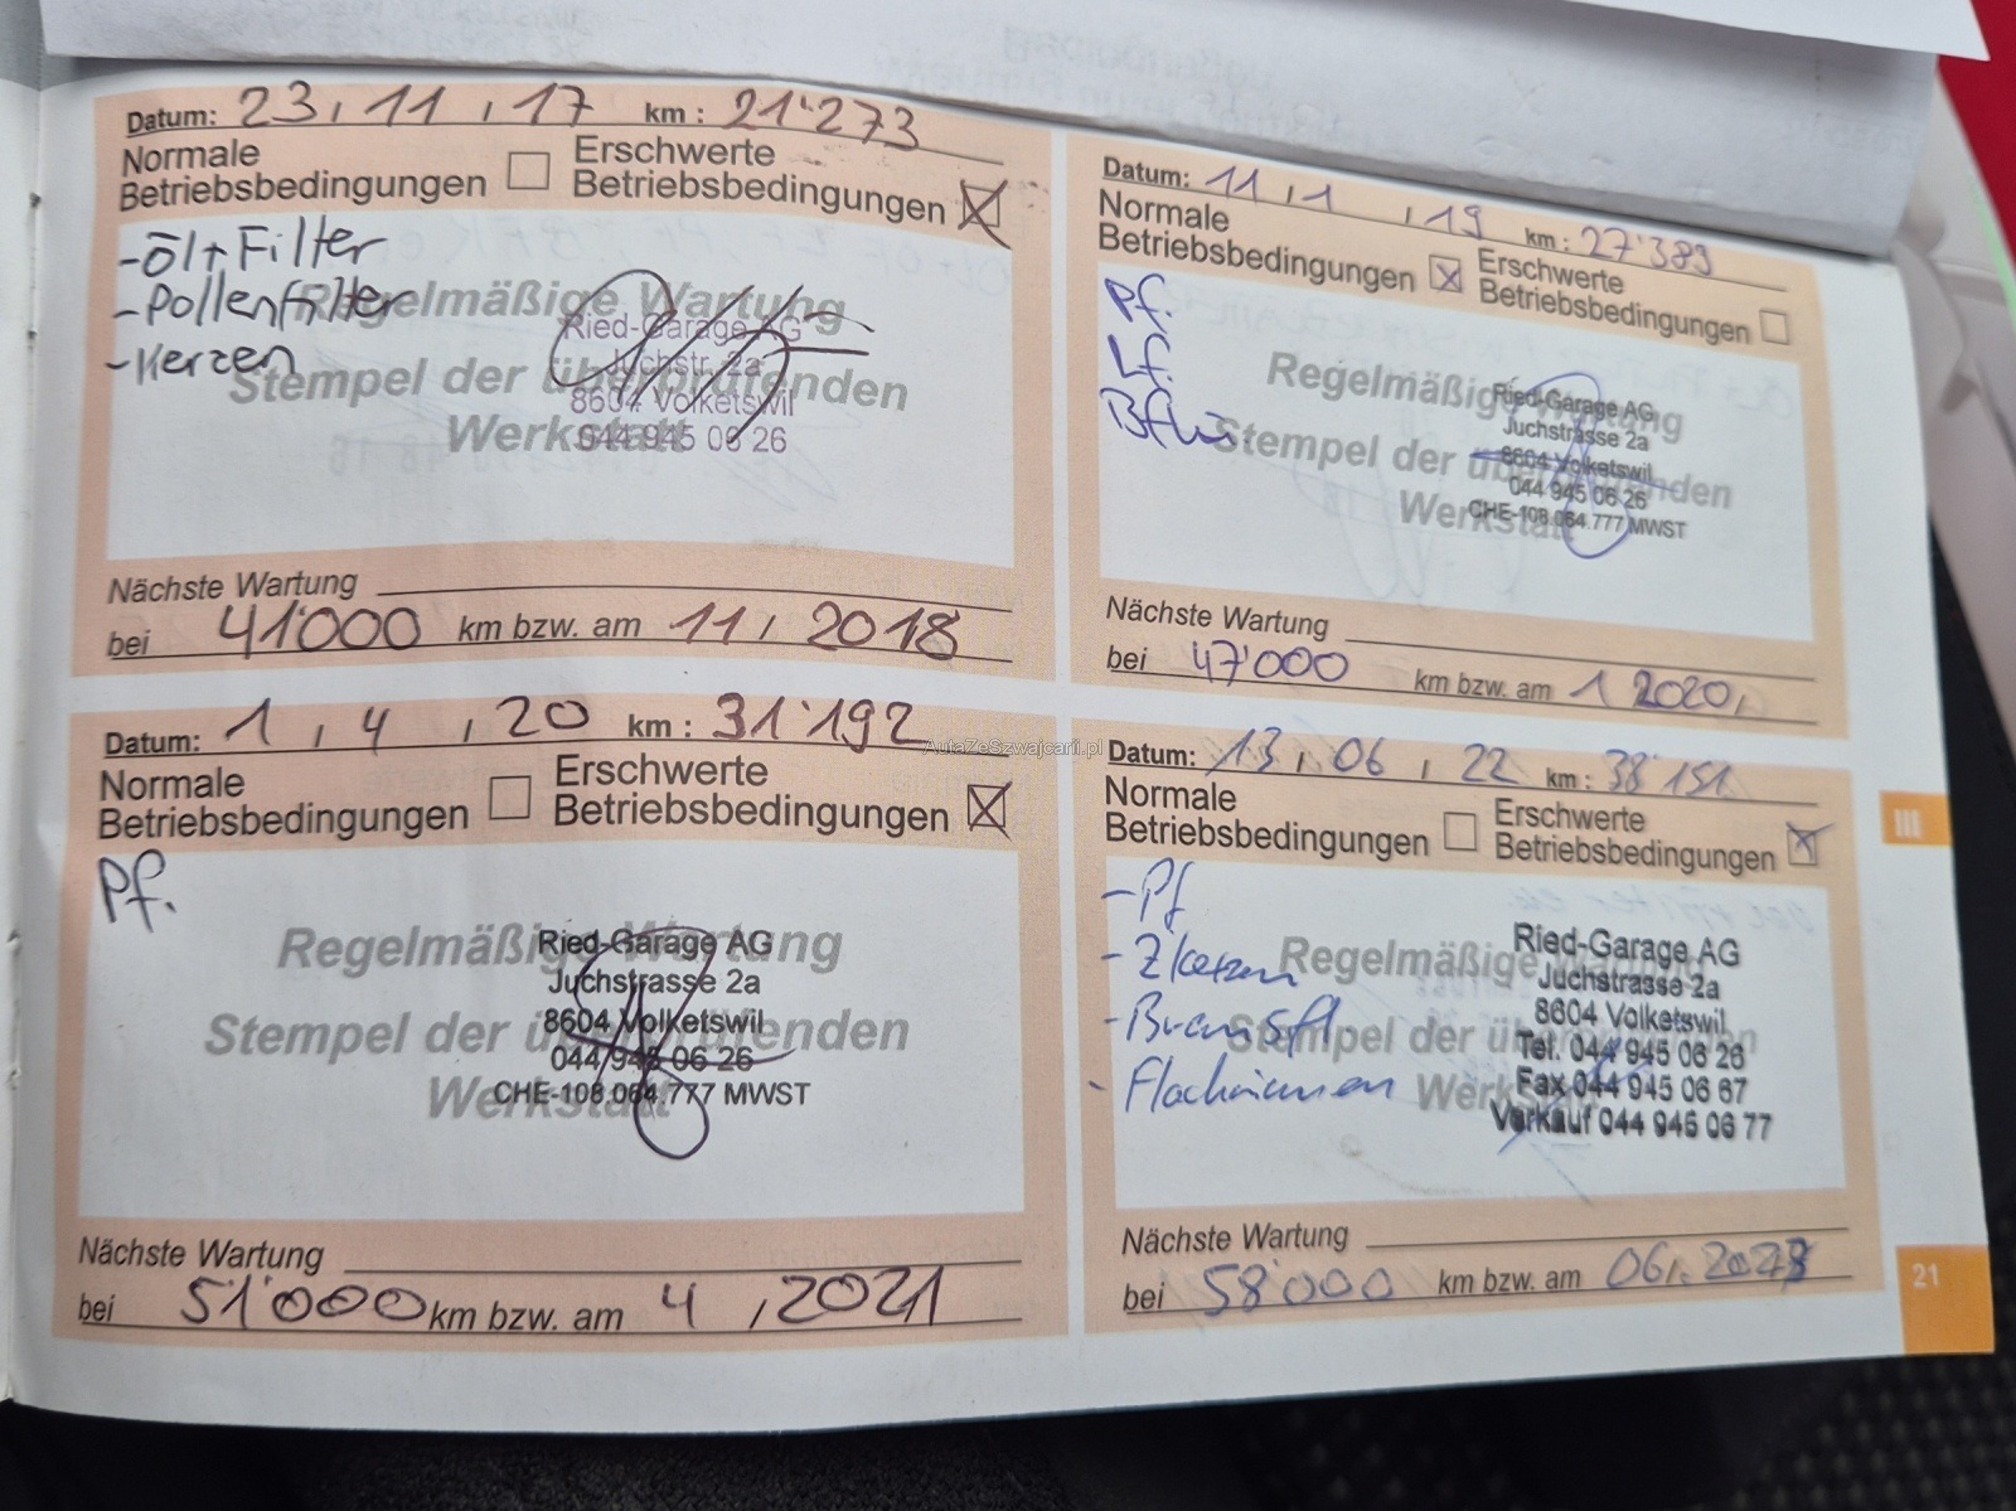 Datum: 23, 11, 17 km: 21'273
Normale Betriebsbedingungen Erschwerte Betriebsbedingungen
- Öl + Filter
- Pollenfilter
- Kerzen
Regelmäßige Wartung
Stempel der überprüfenden
Werkstatt
Ried-Garage AG
Juchstr. 2a
8604 Volketswil
044 945 06 26
Nächste Wartung
bei 41'000 km bzw. am 11, 2018
Datum: 11, 1, 19 km: 27'389
Normale Betriebsbedingungen Erschwerte Betriebsbedingungen
Pf.
Lf.
Regelmäßige Wartung
Stempel der überprüfenden
Werkstatt
Ried-Garage AG
Juchstrasse 2a
8604 Volketswil
044 945 06 26
CHE-108.064.777 MWST
Nächste Wartung
bei 47'000 km bzw. am 1 2020,
Datum: 1, 4, 20 km: 31'192
Normale Betriebsbedingungen Erschwerte Betriebsbedingungen
Pf.
Regelmäßige Wartung
Stempel der überprüfenden
Werkstatt
Ried-Garage AG
Juchstrasse 2a
8604 Volketswil
044 945 06 26
CHE-108.064.777 MWST
Nächste Wartung
bei 51'000 km bzw. am 4, 2021
AutaZeSzwajcarii.pl
Datum: 13, 06, 22 km: 38'151
Normale Betriebsbedingungen Erschwerte Betriebsbedingungen
- Pf
- Zkerzen
- Bremsfl.
- Flachriemen
Regelmäßige Wartung
Stempel der überprüfenden
Werkstatt
Ried-Garage AG
Juchstrasse 2a
8604 Volketswil
Tel. 044 945 06 26
Fax 044 945 06 67
Verkauf 044 945 06 77
Nächste Wartung
bei 58'000 km bzw. am 06, 2023
III
21